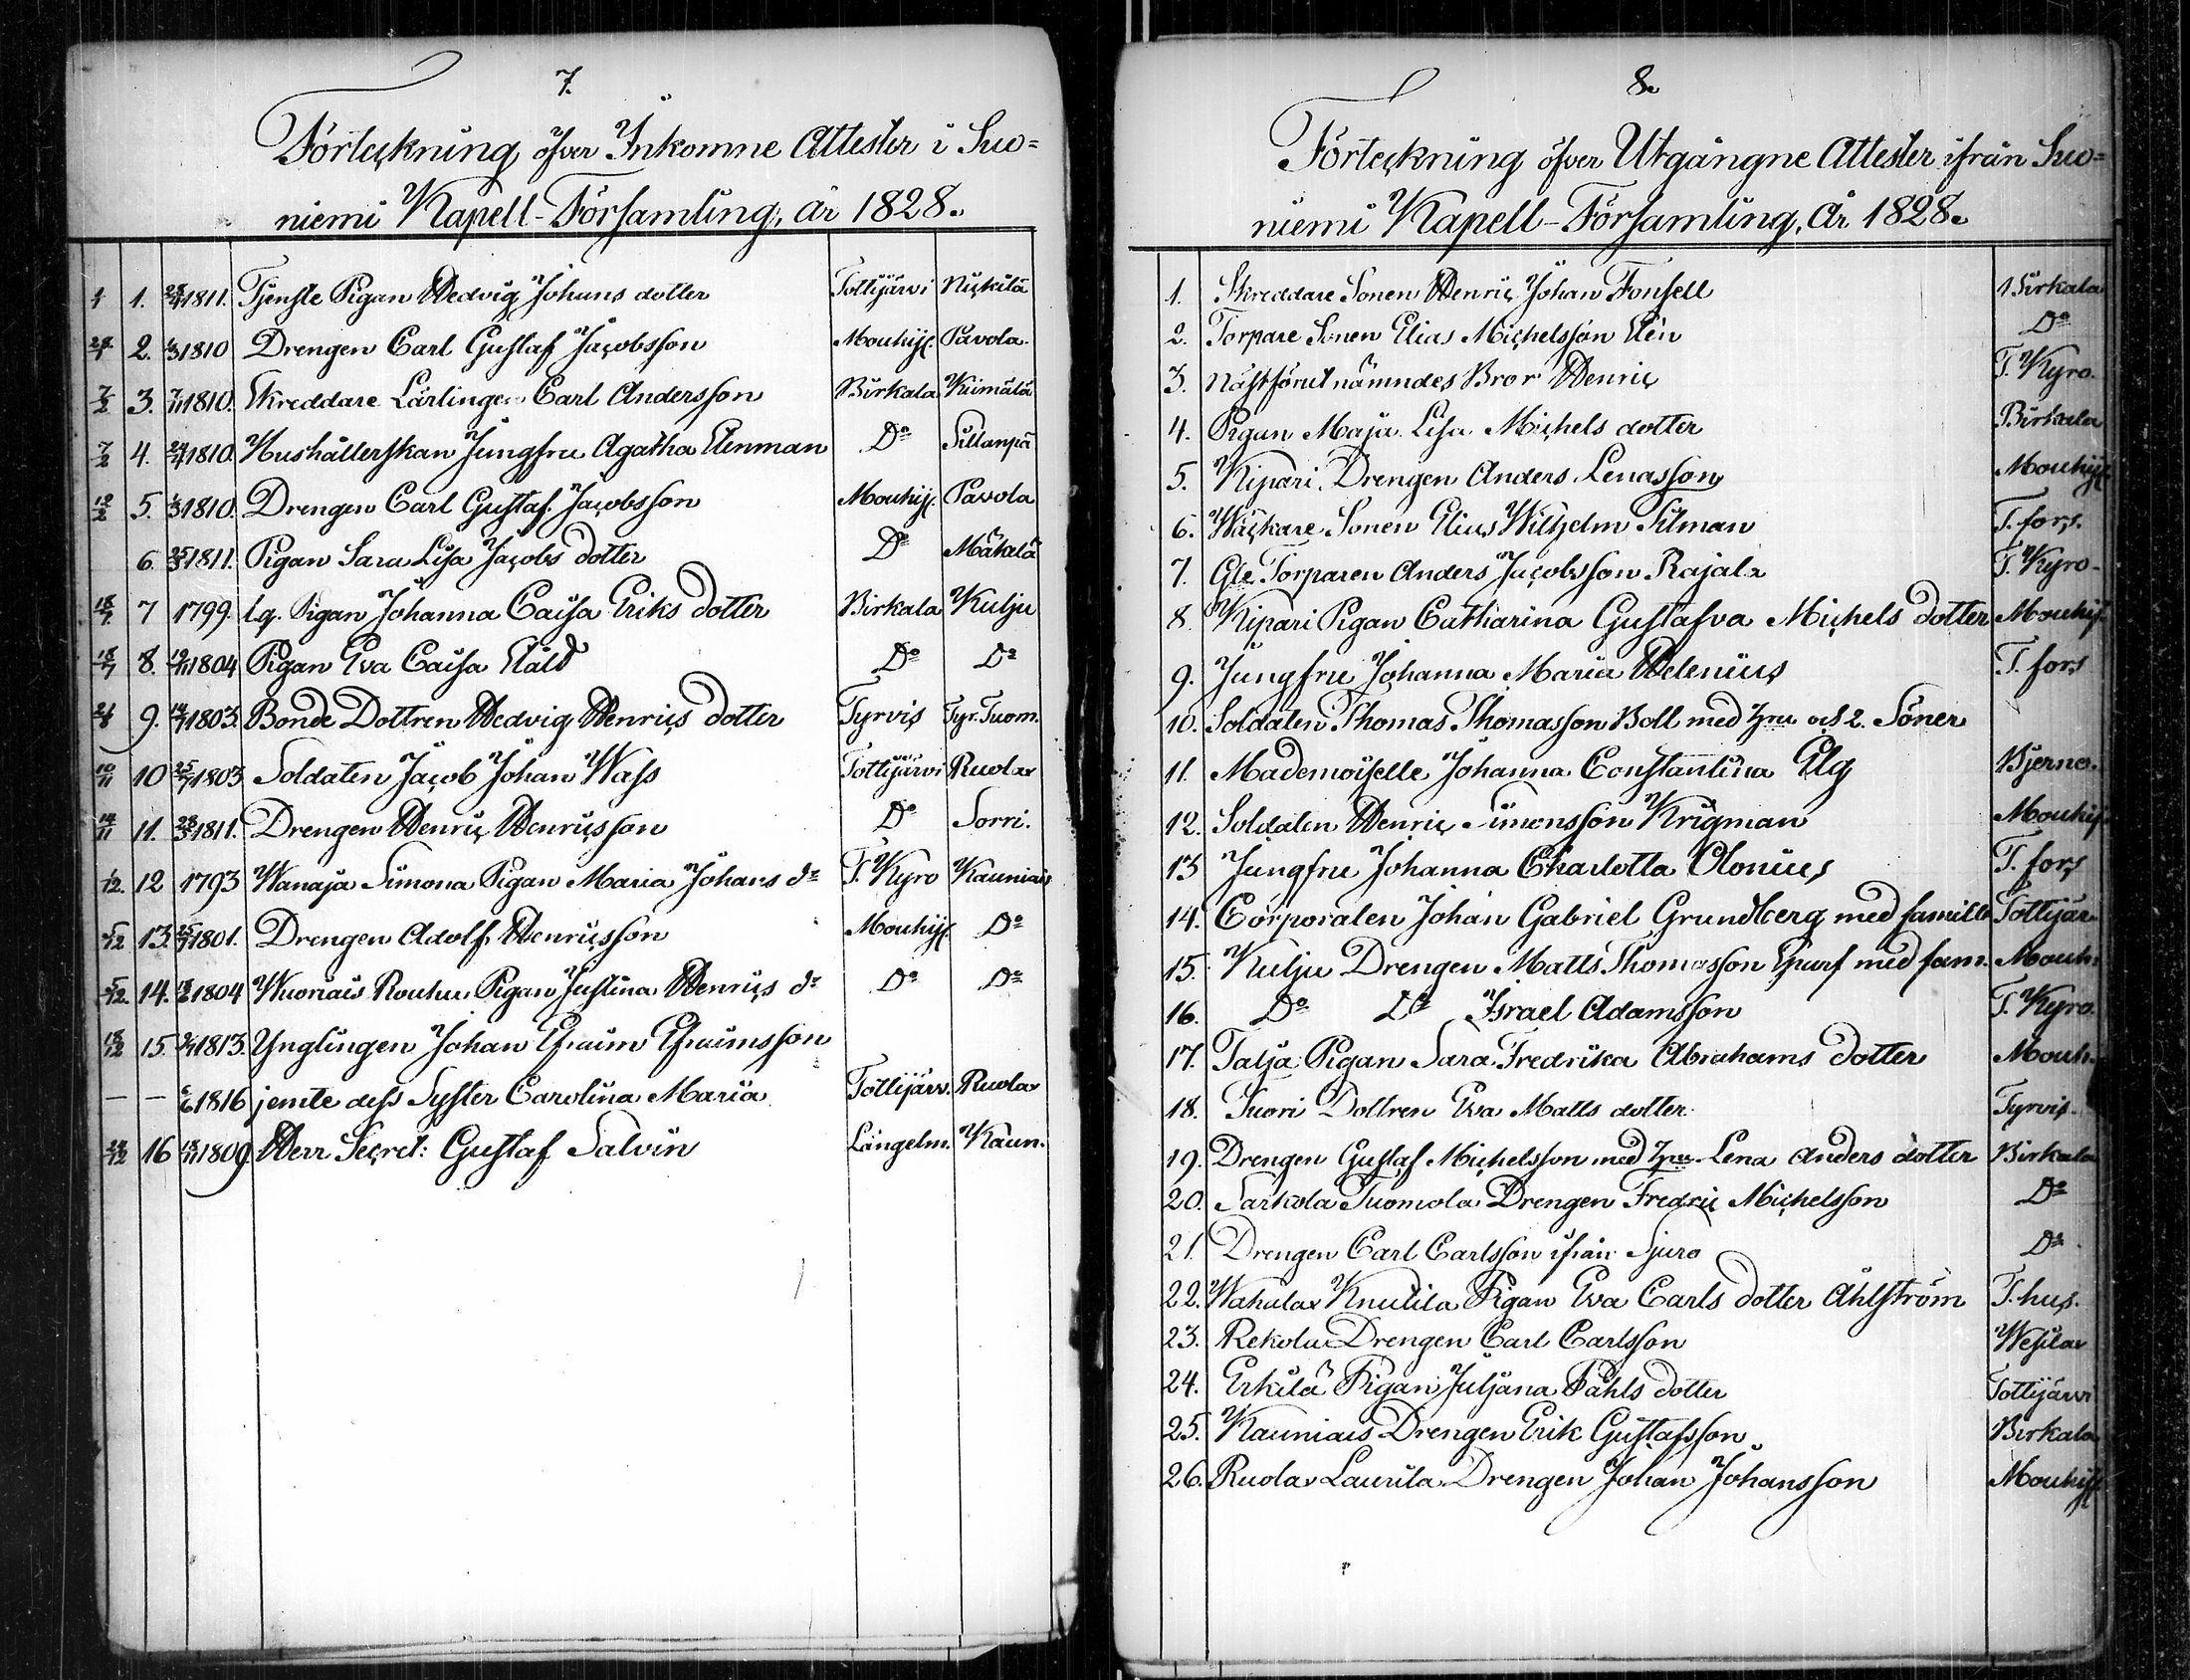 7.
Förteckning öfver Inkomne Attester i Suo=
niemi Kapell-Församling, år 1828.
1. 1811. Tjenste Pigan Hedvig Johans dotter Tottijärvi Nickilä
2. 1810 Drengen Carl Gustaf Jacobsson Mouhij. Pavola.
7/2 3. 7/11 1810. Skreddare Lärlingen Carl Andersson Birkala Kiimälä
7/2 4. 1810. Hushållerskan Jungfru Agatha Elenman Do Sillanpä
12/2 5. 1810. Drengen Carl Gustaf Jacobsson Mouhij. Pavola
6. 25/3 1811. Pigan Sara Lisa Jacobs dotter Do Mäkelä
18/7 7 1799. Pigan Johanna Caisa Eriks dotter Birkala Kulju
18/7 8. 1804 Pigan Eva Caisa Do Do
9. 1803. Bonde Dottren Hedvig Henrics dotter Tyrvis Tyr. Tuom.
10/11 10 25/7 1803 Soldaten Jacob Johan Wass Tottijärvi Ruola
14/11 11. 28/3 1811. Drengen Henric Henricsson Do Sorri.
1/12. 12 1793 Wanaja Simona Pigan Maria Johans dr T. Kyro Kauniais
5/12 13. 25/7 1801. Drengen Adolf Henricsson Mouhij Do
5/12. 14. 1804 Wuoriais Rouhu Pigan Justina Henrics dr Do Do
18/12 15. 1813. Ynglingen Johan Efraim Efraimsson
— — 1816 jemte dess Syster Carolina Maria Tottijärv. Ruola
16 18/11 1809. Herr Secret: Gustaf Salvin Längelm. Kaun.
8.
Förteckning öfver Utgångne Attester ifrån Suo=
niemi Kapell-Församling, År 1828.
1. Skreddare Sonen Henric Johan Fonsell Birkala
2. Torpare Sonen Elias Michelsson Elén Do
3. Nästförut nämndes Bror Henric T. Kyro.
4. Pigan Maja Lisa Michels dotter Birkala
5. Kipari Drengen Anders Lenasson Mouhij
6. Wäckare Sonen Elias Wilhelm Silman T. fors.
7. Gle Torparen Anders Jacobsson Rajala T. Kyro
8. Kipari Pigan Catharina Gustafva Michels dotter Mouhij
9. Jungfru Johanna Maria Helenius T. fors
10. Soldaten Thomas Thomasson Boll med hru och 2. Söner
11. Mademoiselle Johanna Constantina Elg Bjerno.
12. Soldaten Henric Simonsson Krigman Mouhij
13 Jungfru Johanna Charlotta Olonius T. fors
14. Corporalen Johan Gabriel Grundberg med famille Tottijär
15. Kulju Drengen Matts Thomasson Spurf med fam. Mouh.
16. Do Do Israel Adamsson T. Kyro.
17. Talja Pigan Sara Fredrika Abrahams dotter Mouh.
18. Suori Dottren Eva Matts dotter Tyrvis
19. Drengen Gustaf Michelsson med hru Lena Anders dotter Birkala
20. Sarkola Tuomola Drengen Fredric Michelsson Do
21. Drengen Carl Carlsson ifrån Sjuro Do
22. Wahala Knutila Pigan Eva Carls dotter Åhlström T. hus.
23. Rekola Drengen Carl Carlsson Wesila
24. Erkilä Pigan Juljana Påhls dotter Tottijärvi
25. Kauniais Drengen Erik Gustafsson Birkala
26. Ruola Laurila Drengen Johan Johansson Mouhij